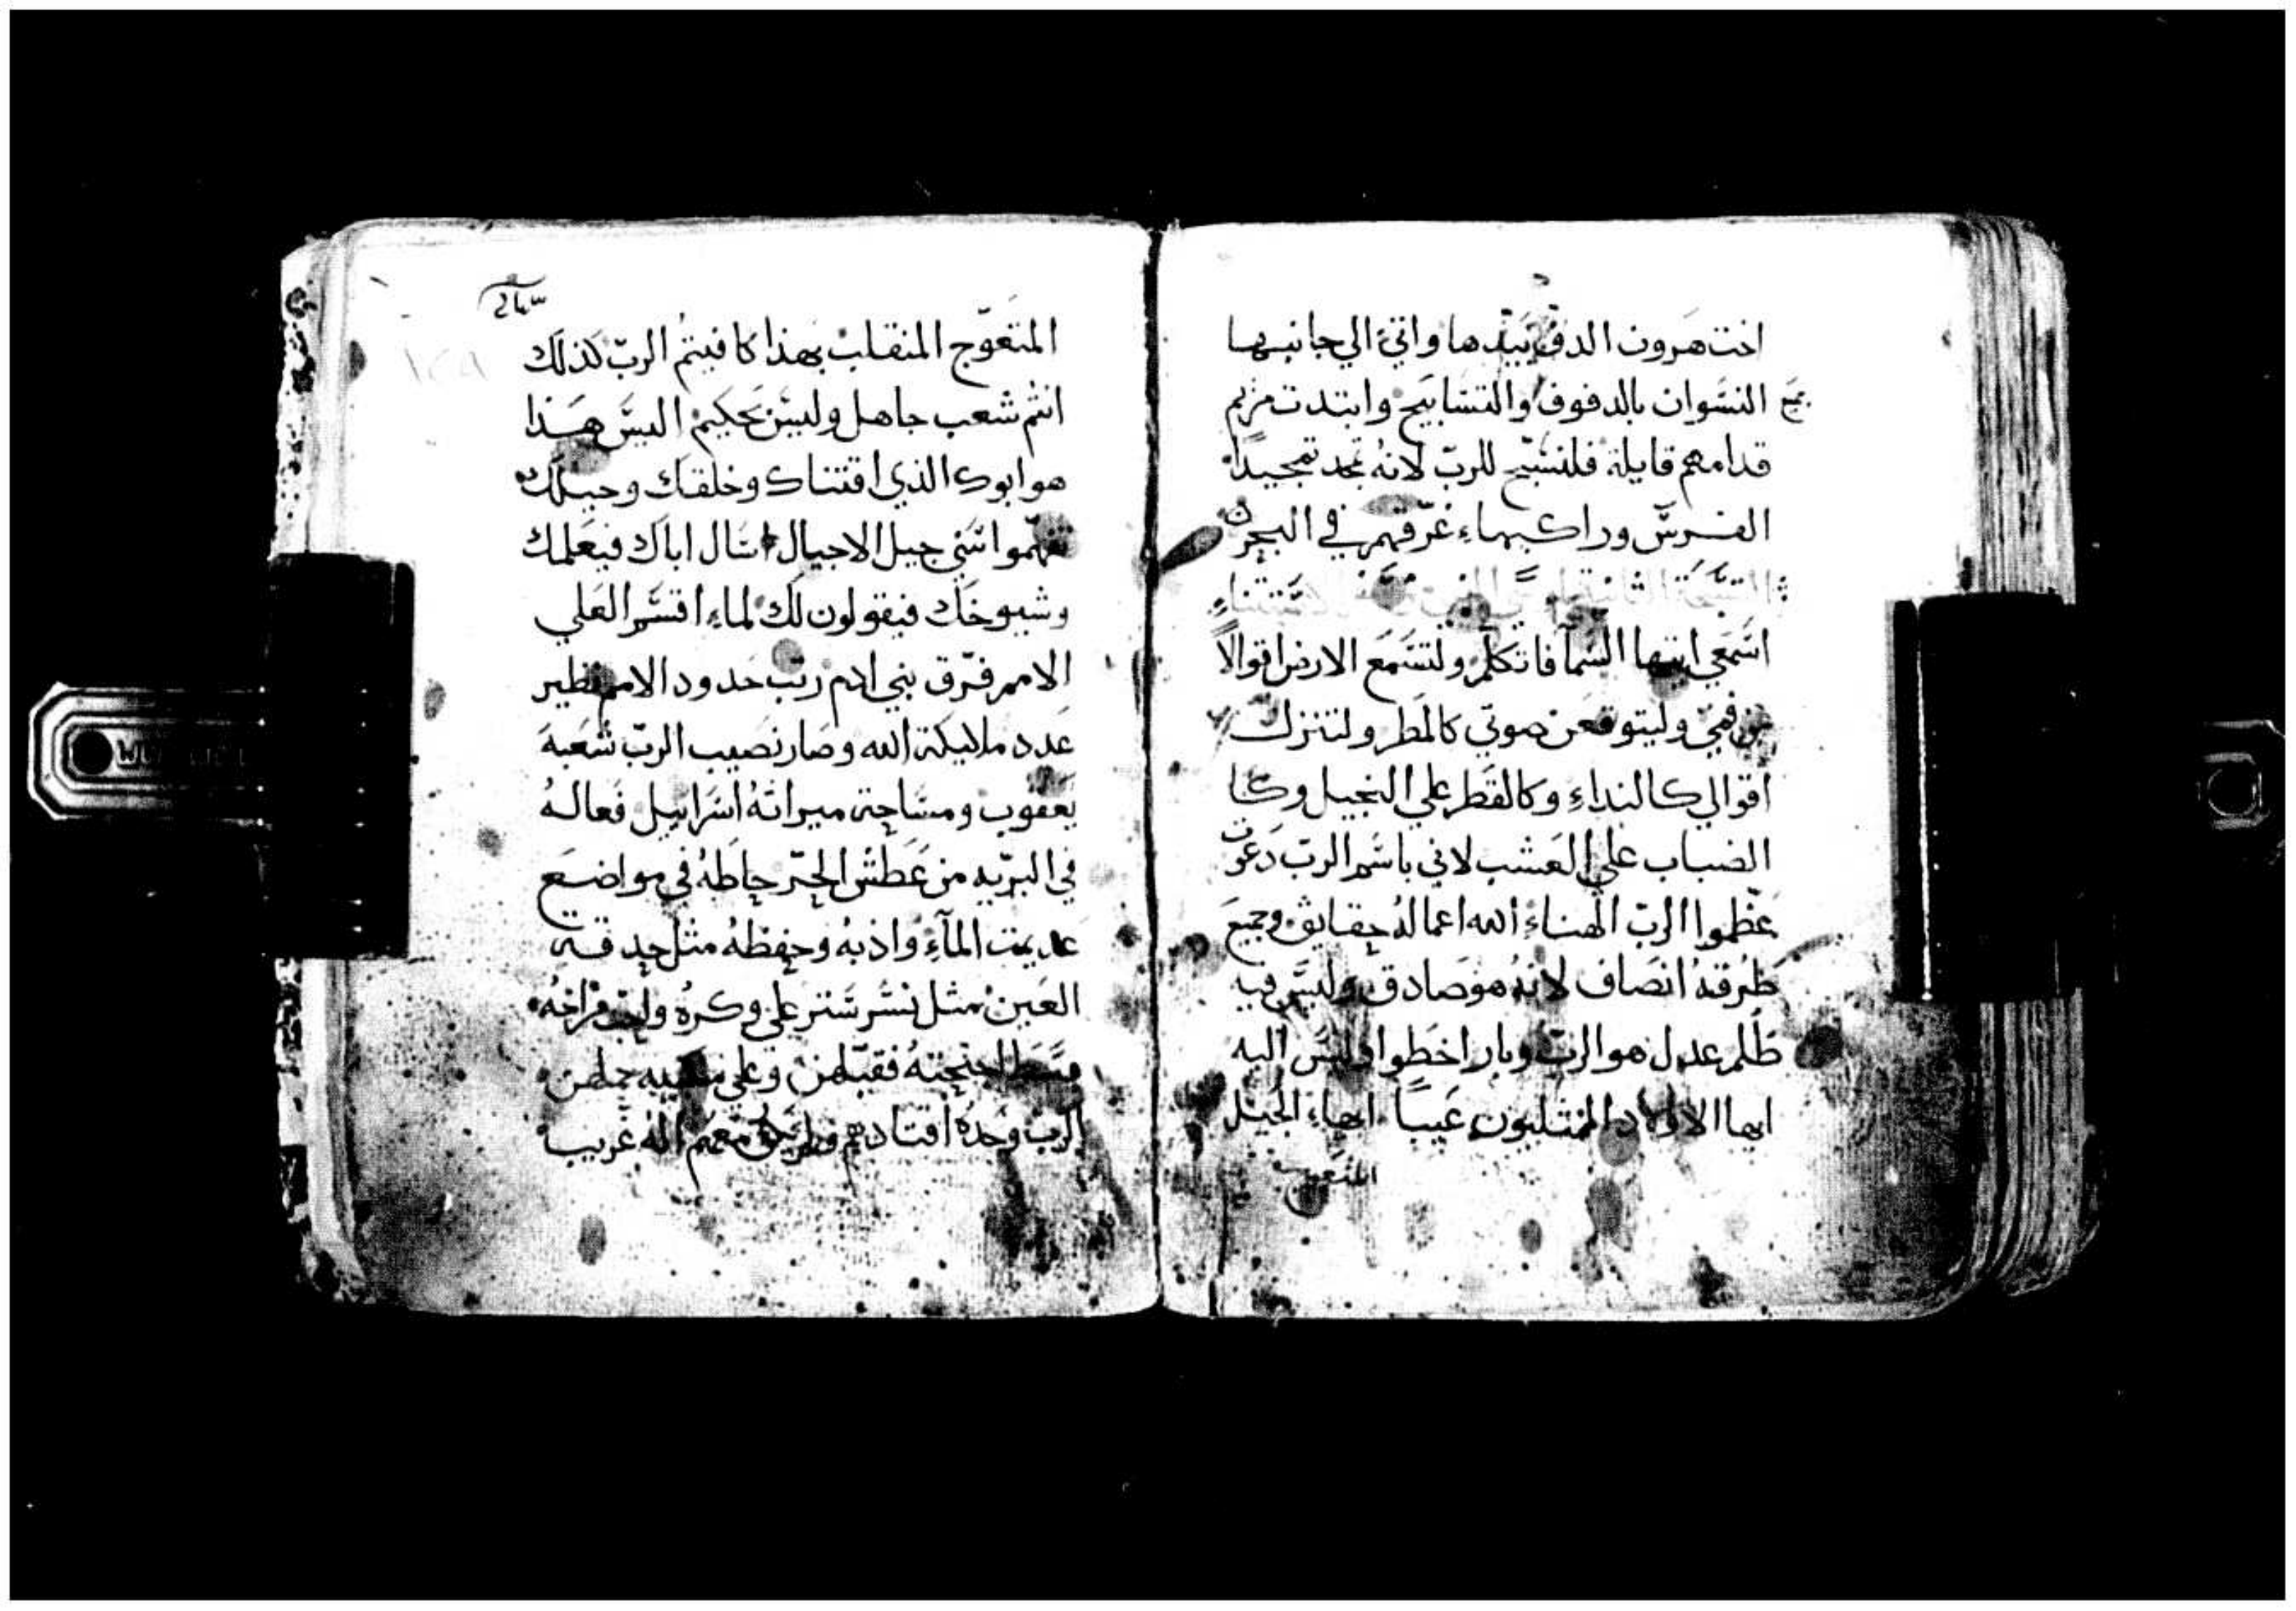 اخت هرون الدف بيدها واتي الي جانبها
جميع النسوان بالدفوف والتسابيح وابتدت مريم
قدامهم قايلة فلنسبح للرب لانه تمجد تمجيدا
الفرس وراكبهاء غرقهم في البحر
التسبحة الثانية
اسمعي ايتها السما فاتكلم ولتسمع الارض اقوالا
من فمي وليتوقع صوتي كالمطر ولتنزل
اقوالي كالنداء وكالقطر علي النجيل وكا
الضباب علي العشب لاني باسم الرب دعوت
عظموا الرب الهناء الله اعماله حقايق وجميع
طرقه انصاف لانه هو صادق وليس فيه
ظلم عدل هو الرب وبار اخطوا وليس اليه
ايها الاولاد المثلبون عيبا ايهاء الجيل
المتعوج
المتعوج المنقلب بهذا كافيتم الرب كذلك
انتم شعب جاهل وليس بحكيم اليس هذا
هو ابوك الذي اقتناك وخلقك وجبلك
تفهموا سني جيل الاجيال اسال اباك فيعلمك
وشيوخك فيقولون لك لماء اقسم العلي
الامم فرق بني ادم رتب حدود الامم نظير
عدد ملايكة الله وصار نصيب الرب شعبه
يعقوب ومساحة ميراثه اسراييل فعاله
في البريه من عطش الحر حاطه في مواضع
عديمت المآء واذبه وحفظه مثل حدقة
العين مثل نسر ستر علي وكره والي فراخه
بسط اجنحته فقبلهن وعلي منكبيه حملهن
الرب وحده اقتادهم ولم يكن معهم اله غريب